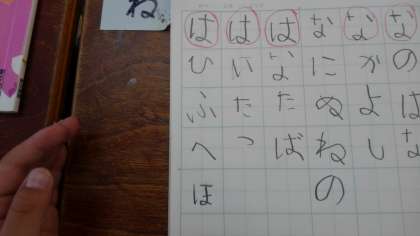 なのはな
なかよし
なにぬねの
はなたば
はいたつ
はひふへほ